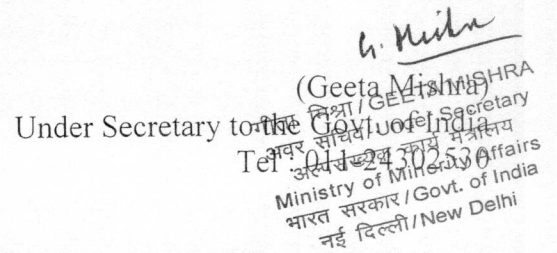 G. Mishra
(Geeta Mishra)
Under Secretary to the Govt. of India
Tel : 011-24302530
गीता मिश्रा / GEETA MISHRA
अवर सचिव / Under Secretary
अल्पसंख्यक कार्य मंत्रालय
Ministry of Minority Affairs
भारत सरकार / Govt. of India
नई दिल्ली / New Delhi